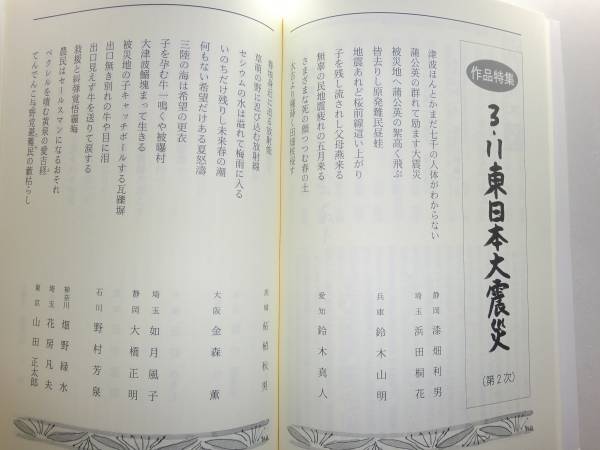 作品特集
3・11東日本大震災
(第2次)
津波ほんとかまだ七千の人体がわからない
静岡 漆畑利男
蒲公英の群れて励ます大震災
被災地へ蒲公英の絮高く飛ぶ
埼玉 浜田桐花
皆去りし原発難民昼蛙
地震あれど桜前線這い上がり
兵庫 鈴木山明
子を残し流されし父母燕来る
無辜の民地震疲れの五月来る
さまざまな死の顔つつむ春の土
愛知 鈴木真人
草萌の野に忍び込む放射線
セシウムの水は溢れて梅雨に入る
いのちだけ残りし未来春の潮
大阪 金森薫
何もない希望だけある夏怒濤
三陸の海は希望の更衣
埼玉 如月風子
子を孕む牛一鳴くや被曝村
大津波鰯塊まって生きる
静岡 大橋正明
被災地の子キャッチボールする瓦礫塀
出口無き別れの牛や目に泪
石川 野村芳泉
出口見えず牛を送りて涙する
救援と絆
神奈川 畑野緑水
農民はセールスマンになるおそれ
埼玉 花房凡夫
ベクレルを噴む黄泉の愛吉
東京 山田正太郎
てんでんこ